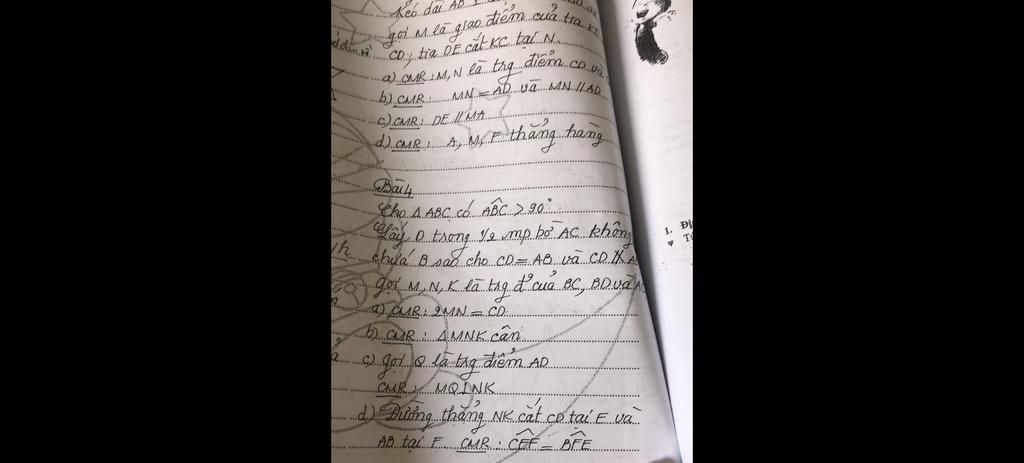 Kéo dài AB
gọi M là giao điểm của tia KE
CD, tia DE cắt KC tại N.
a) CMR: M, N là trg điểm CD và
b) CMR: MN = AD và MN // AD
c) CMR: DE // MA
d) CMR: A, M, F thẳng hàng
Bài 4
Cho Δ ABC có ABC > 90°
Lấy D trong 1/2 mp bờ AC không
chứa B sao cho CD = AB và CD
gọi M, N, K là trg đ' của BC, BD và
a) CMR: 2MN = CD
b) CMR: Δ MNK cân
c) gọi Q là trg điểm AD
CMR: MQ ⊥ NK
d) Đường thẳng NK cắt CD tại E và
AB tại F. CMR: CEF = BFE
1. Đị